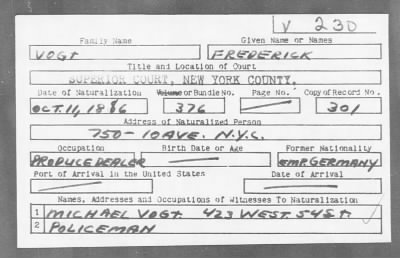 V 230
Family Name Given Name or Names
VOGT FREDERICK
Title and Location of Court
SUPERIOR COURT, NEW YORK COUNTY.
Date of Naturalization Volume or Bundle No. Page No. Copy of Record No.
OCT. 11, 1886 376 301
Address of Naturalized Person
750-10 AVE. N.Y.C.
Occupation Birth Date or Age Former Nationality
PRODUCE DEALER EMP. GERMANY
Port of Arrival in the United States Date of Arrival
Names, Addresses and Occupations of Witnesses To Naturalization
1 MICHAEL VOGT 423 WEST. 54 ST.
2 POLICEMAN